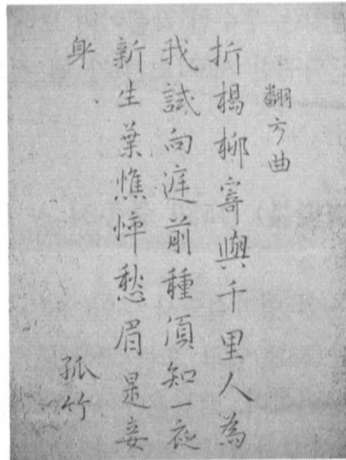 翻方曲
折楊柳寄與千里人為
我試向庭前種須知一夜
新生葉憔悴愁眉是妾
身
孤竹